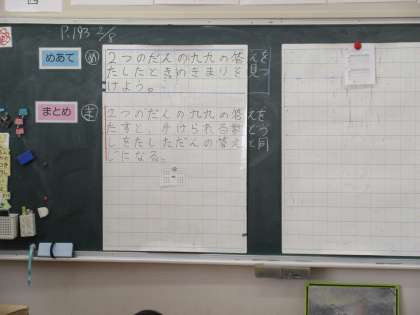 P.193 2/8
めあて
め
2つのだんの九九の答えを
たしたときのきまりを見つ
けよう。
まとめ
ま
2つのだんの九九の答えを
たすと、かけられる数どう
しをたしただんの答えと同
じになる。